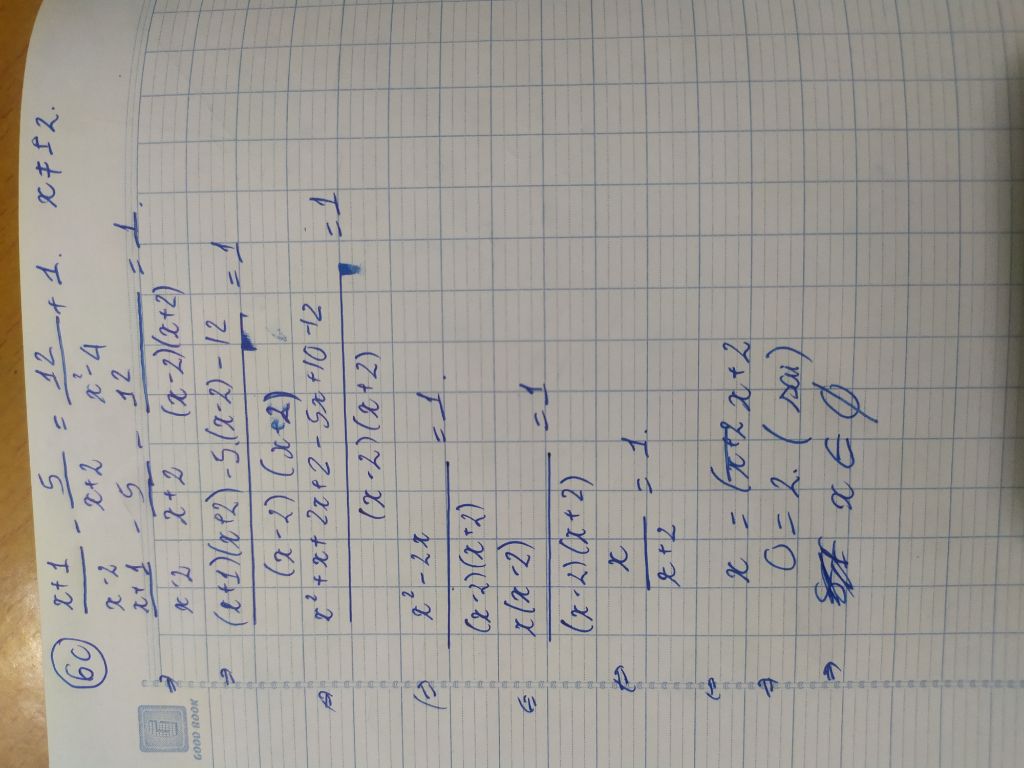 60 (x+1)/(x-2) - 5/(x+2) = 12/(x²-4) + 1. x ≠ ±2.
⇒ (x+1)/(x-2) - 5/(x+2) - 12/((x-2)(x+2)) = 1.
⇒ ((x+1)(x+2) - 5.(x-2) - 12)/((x-2)(x+2)) = 1
⇒ (x²+x+2x+2-5x+10-12)/((x-2)(x+2)) = 1
⇔ (x²-2x)/((x-2)(x+2)) = 1.
⇔ (x(x-2))/((x-2)(x+2)) = 1
⇔ x/(x+2) = 1.
⇔ x = x+2
⇒ 0 = 2. (sai)
⇒ x ∈ ∅
GOOD BOOK